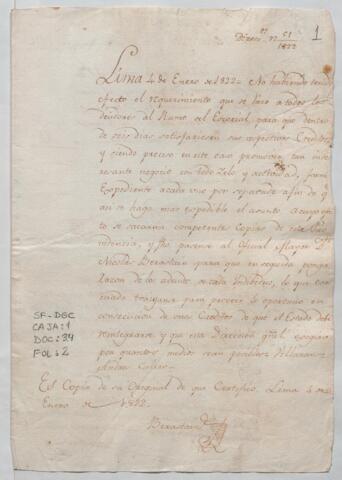 Direcc.on N 51
1822
1
Lima 4 de Enero de 1822 = No habiendo tenido
efecto el requerimiento que se hizo a todos los
deudores al Ramo del Especial, para que dentro
de seis dias satisfaciesen sus respectivos Creditos
y siendo preciso en este caso promover tan inte
resante negocio con todo zelo y actividad, forme
Expediente a cada uno por separado afin de q.e
asi se haga mas expedible el asunto. A cuyo efec
to se sacarán competentes Copias de esta Pro
videncia, y fho pasense al Oficial Mayor D.n
Nicolas Berastain para que en seguida ponga
razon de lo de cada Individuo, con lo que
trayganse para proveer lo oportuno en
consecucion de unos Creditos de que el Estado debe
reintegrarse y que esta Direccion gral
por quantos medios sean posibles =
SF-DGC
CAJA:1
DOC:34
FOL:2
Es Copia de su Original de que Certifico. Lima y
Enero de 1822.
Berastain